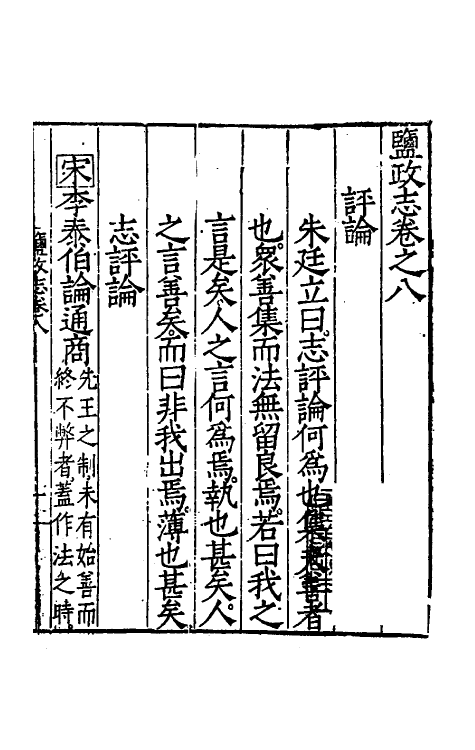 鹽政志卷之八
評論
朱廷立曰志評論何為也集衆善者
也衆善集而法無留良焉若曰我之
言是矣人之言何為焉執也甚矣人
之言善矣而曰非我出焉薄也甚矣
志評論
宋李泰伯論通商先王之制未有始善而
終不弊者蓋作法之時
鹽政志卷八